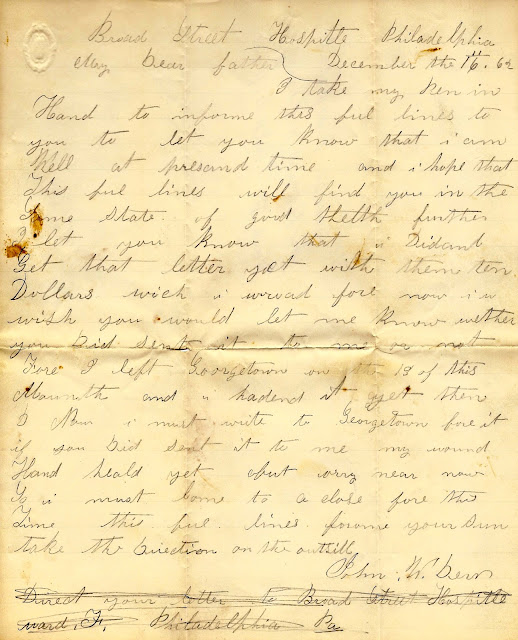 Broad Street Hospitte Philadelphia
My Dear father December the 16. 62
I take my Pen in
Hand to informe this ful lines to
you to let you know that i am
Well at presand time and i hope that
This ful lines will find you in the
Same state of good Thelth further
I let you know that i Didant
Get that letter yet with them ten
Dollars wich i wrood fore now i w
wish you would let me know wether
you Did sent it to me or not
Fore I left Georgetown on the 13 of this
Mounth and i hadend it yet then
I Now i must write to Georgetown fore it
if you Did sent it to me my wound
Hand heald yet but worry near now
So i must Come to a close fore this
Time this ful lines frome your Sun
take the Direction on the outsill
John W. Derr
Direct your letter to Broad Street Hospitle
ward. F. Philadelphia Pa